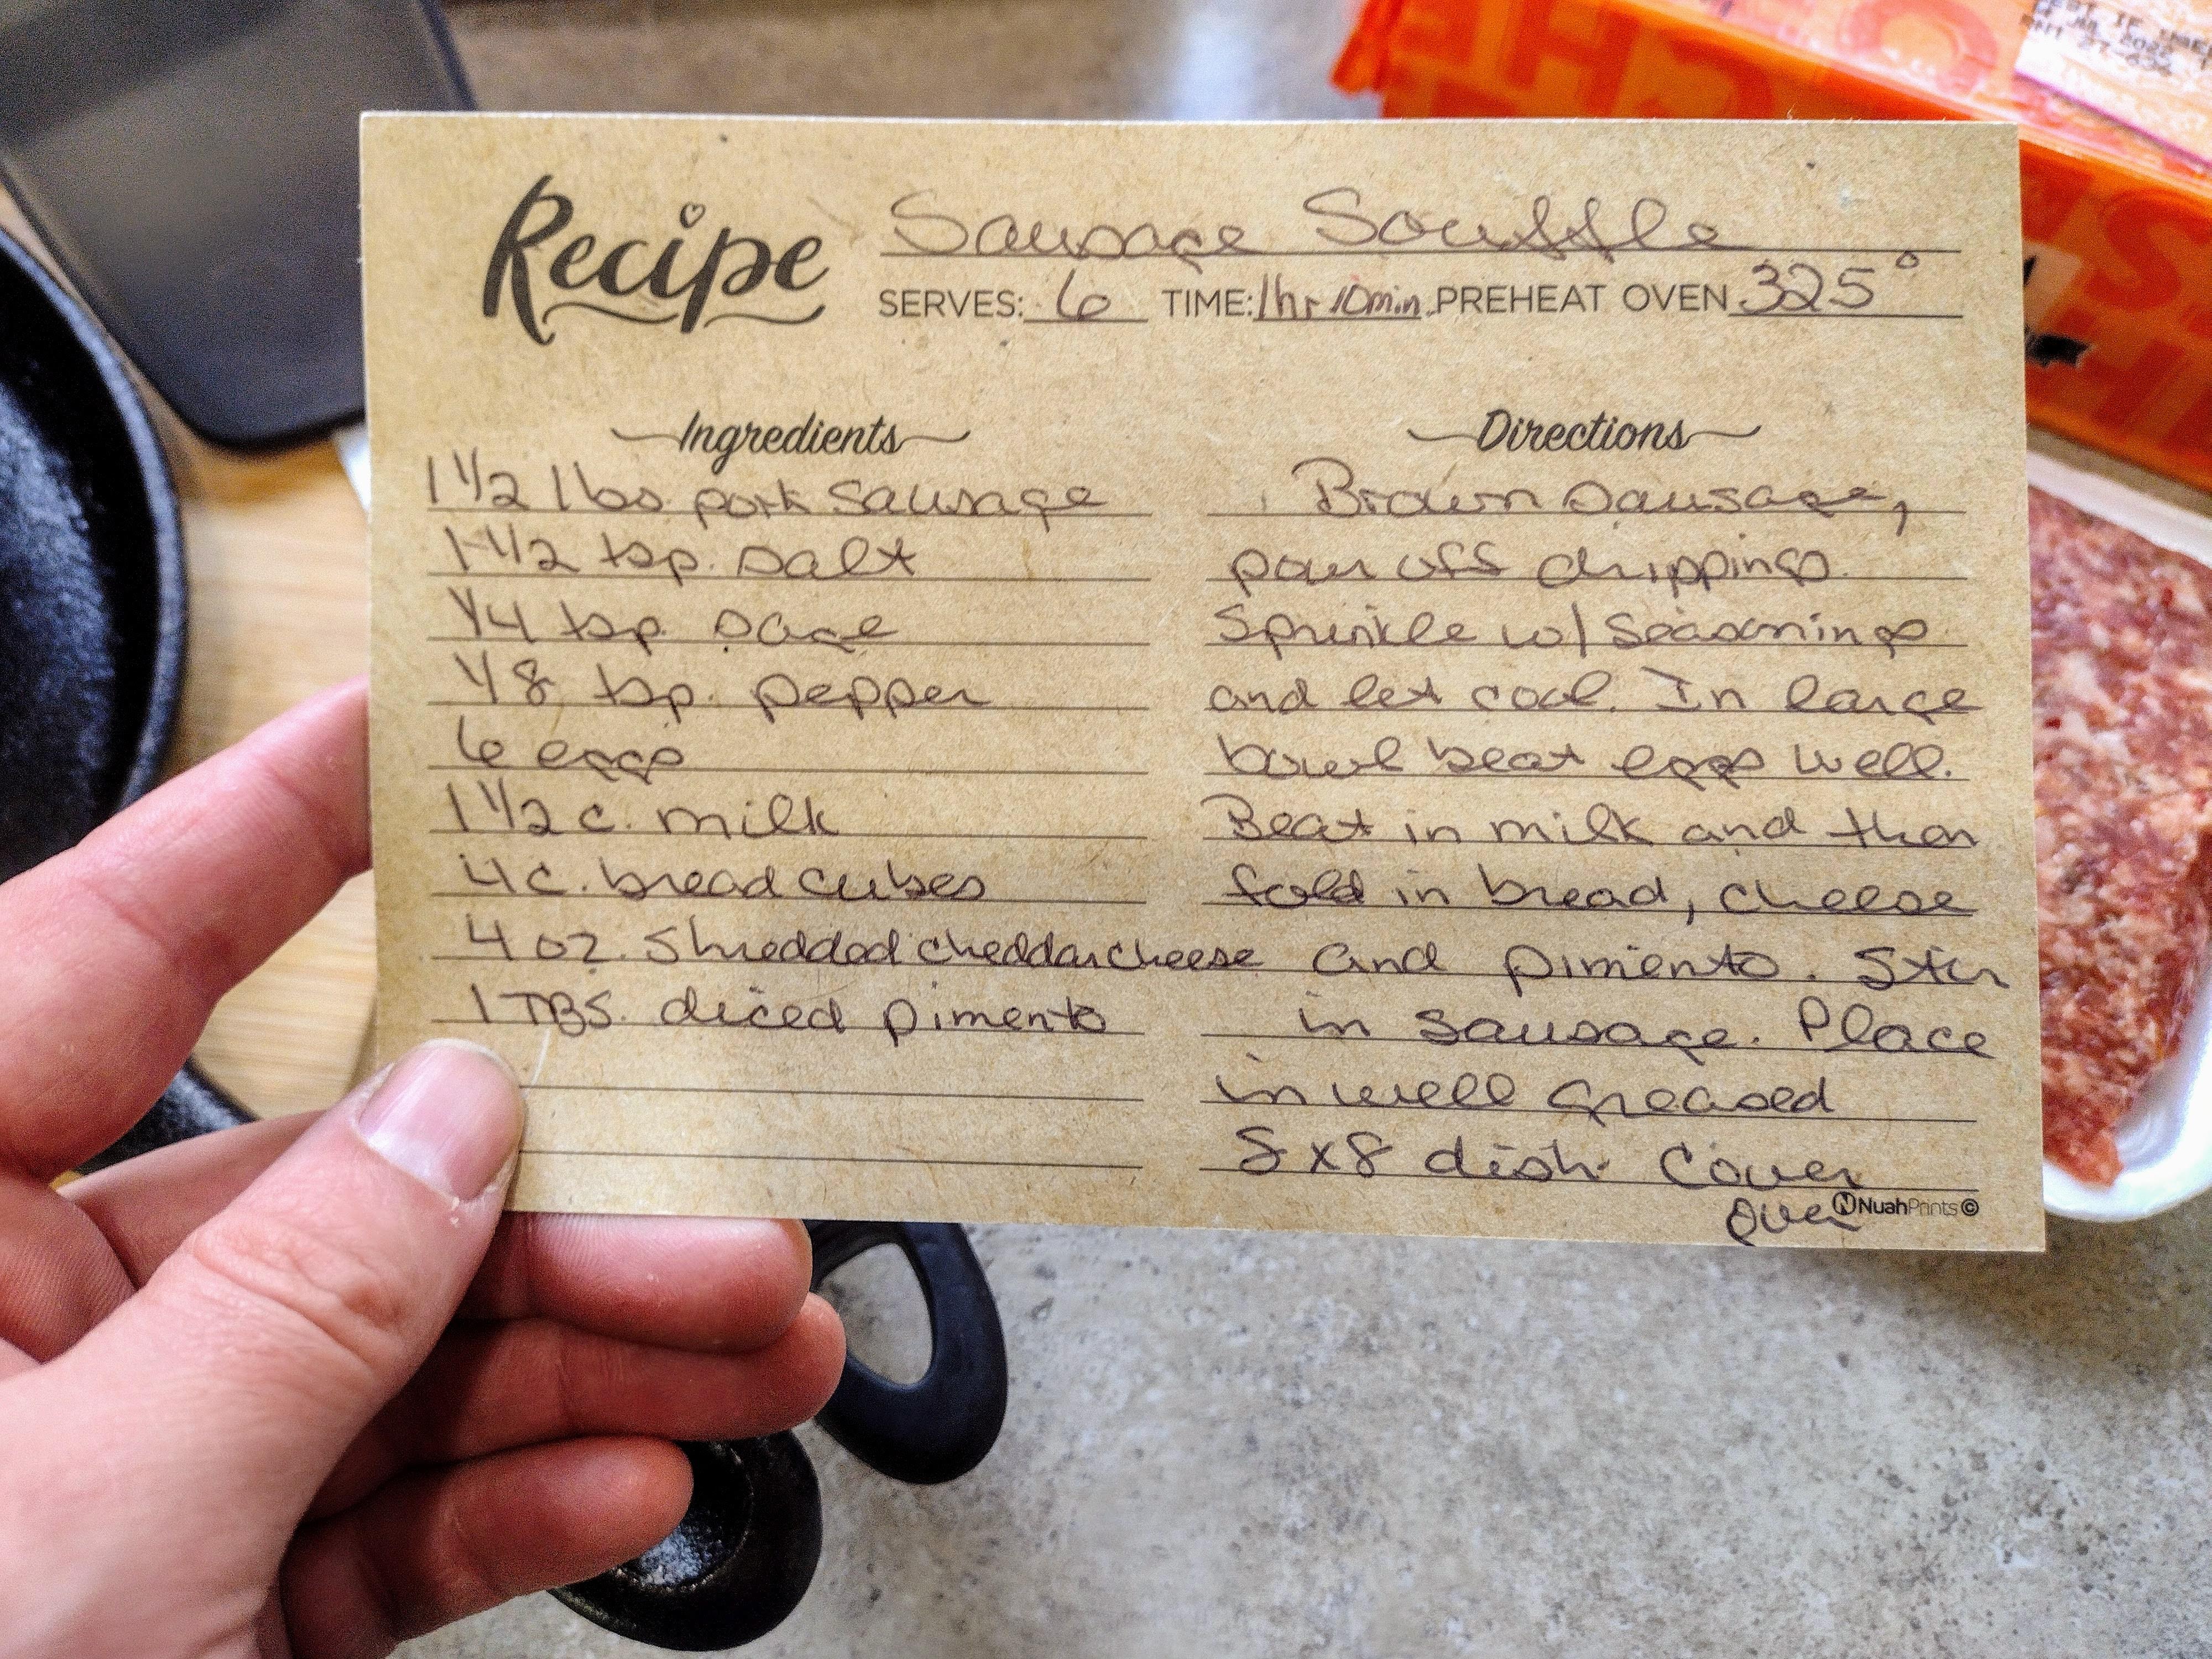 Recipe
Sausage Souffle
SERVES: 6 TIME: 1hr 10min. PREHEAT OVEN 325°
Ingredients
1 1/2 lbs pork sausage
1 1/2 tsp. salt
1/4 tsp. sage
1/8 tsp. pepper
6 eggs
1 1/2 c. milk
4 c. bread cubes
4 oz. shredded cheddar cheese
1 TBS. diced pimento
Directions
Brown sausage,
pour off drippings.
Sprinkle w/ seasonings
and let cool. In large
bowl beat eggs well.
Beat in milk and then
fold in bread, cheese
and pimento. Stir
in sausage. Place
in well greased
8x8 dish. Cover
over
NuahPrints ©